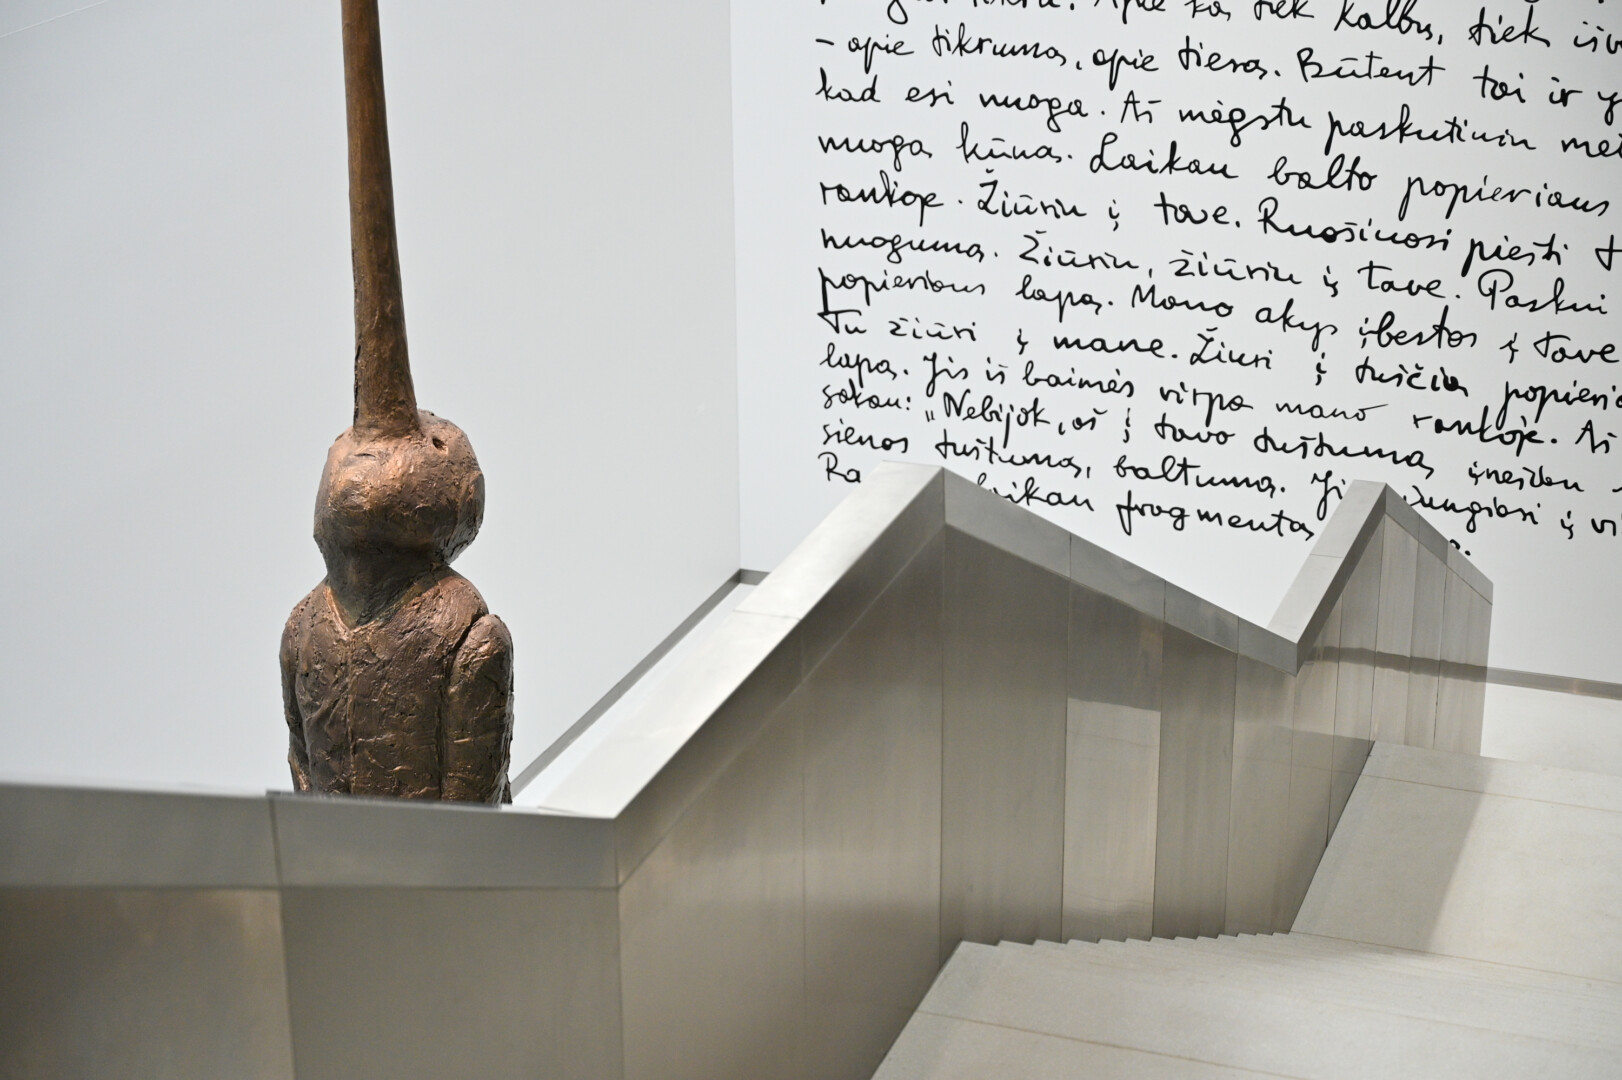 Apie ką tiek kalbu, tiek
– apie tikrumą, apie tiesą. Būtent tai ir
kad esi nuoga. Aš mėgstu paskutiniu
nuogą kūną. Laikau balto popieriaus
rankoje. Žiūriu į tave. Ruošiuosi piešti
nuogumą. Žiūriu, žiūriu į tave. Paskui
popieriaus lapą. Mano akys įbestos į tave
Tu žiūri į mane. Žiuri į tuščią
lapą. Jis iš baimės virpa mano rankoje. Aš
sakau: „Nebijok, aš į tavo tuštumą įnešiu
sienos tuštumą, baltumą. Ji
Ra laikau fragmentą